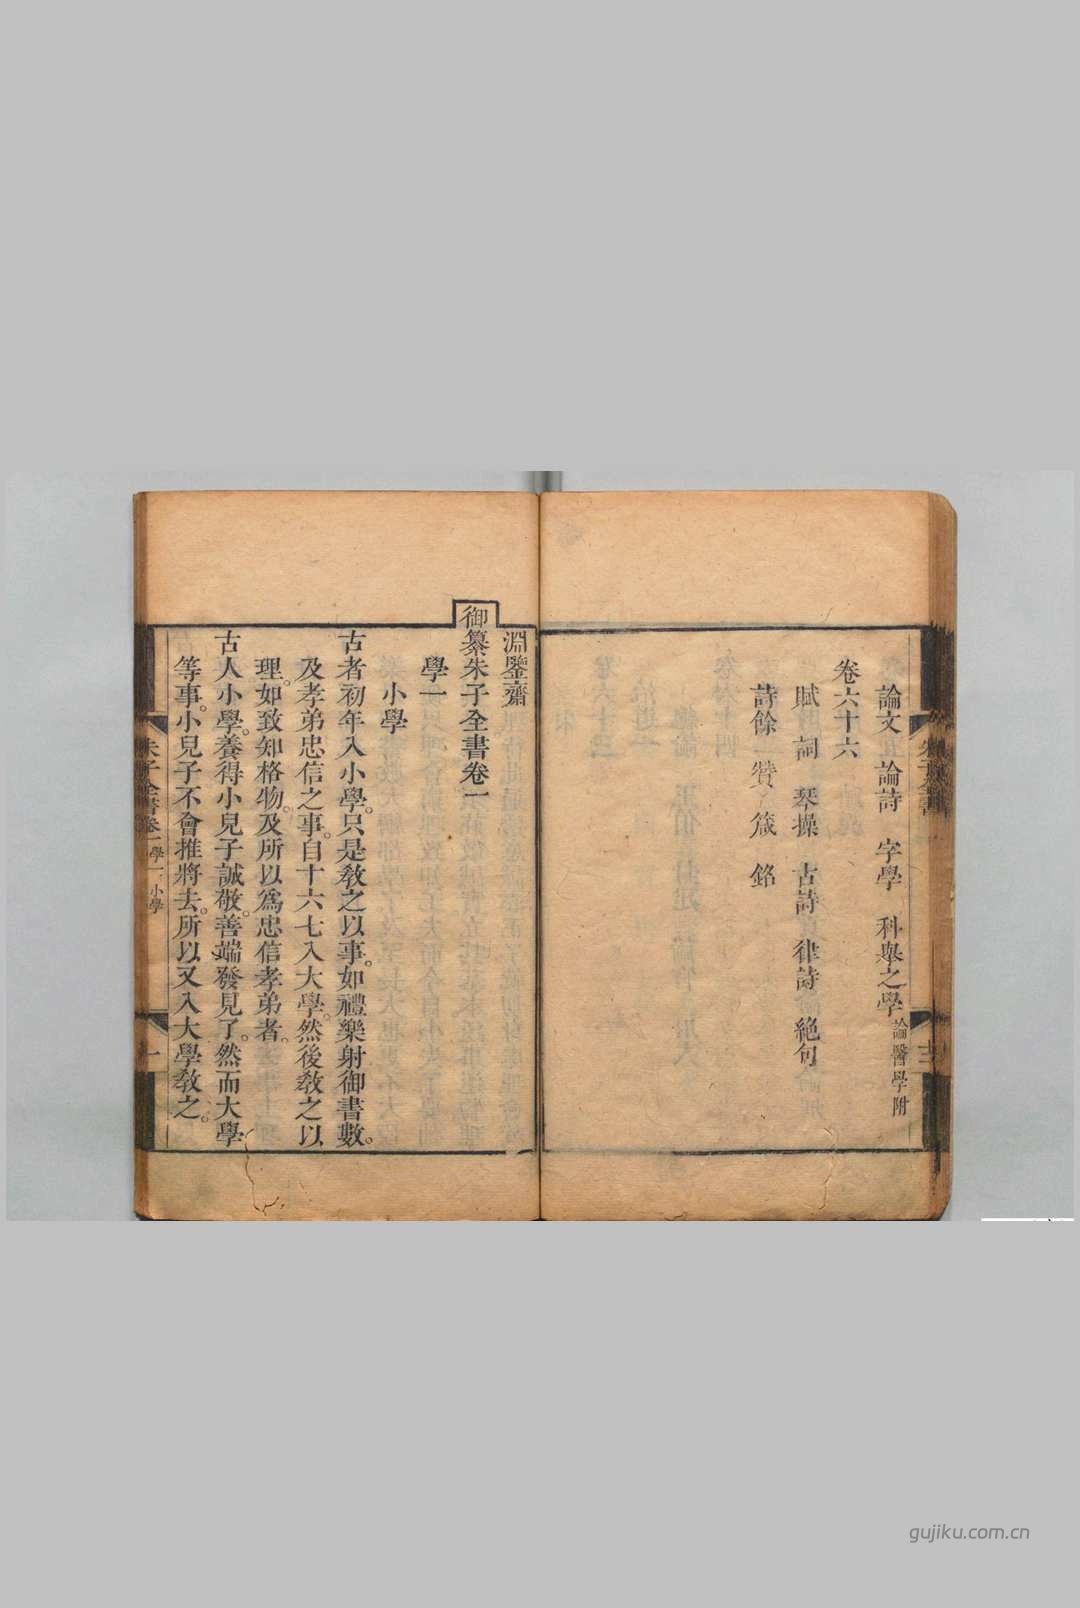 論文 論詩 字學 科舉之學 論醫學附
卷六十六
賦 詞 琴操 古詩 律詩 絕句
詩餘 贊 箴 銘
淵鑒齋
御纂朱子全書卷一
學一
小學
古者初年入小學。只是教之以事。如禮樂射御書數。
及孝弟忠信之事。自十六七入大學。然後教之以
理。如致知格物。及所以為忠信孝弟者。
古人小學。養得小兒子誠敬。善端發見了。然而大學
等事。小兒子不會推將去。所以又入大學教之。
朱子全書卷一 學一 小學
一
gujiku.com.cn